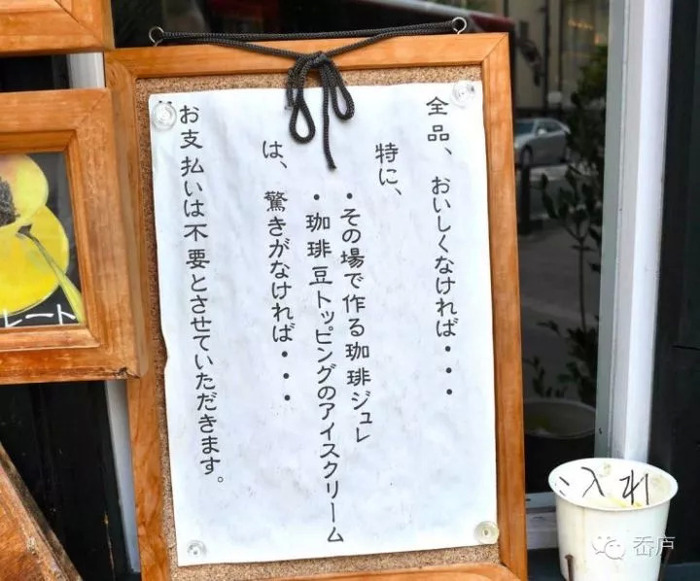 全品、おいしくなければ・・・
特に、
・その場で作る珈琲ジュレ
・珈琲豆トッピングのアイスクリーム
は、驚きがなければ・・・
お支払いは不要とさせていただきます。
レート
岙庐